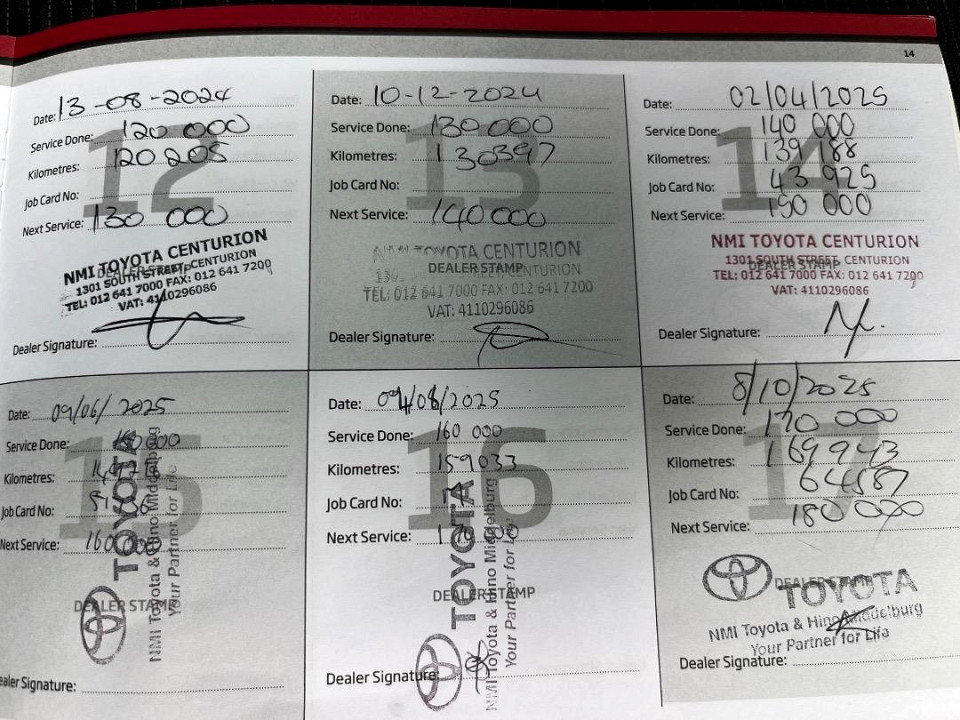 14
12
Date: 13-08-2024
Service Done: 120 000
Kilometres: 120 205
Job Card No:
Next Service: 130 000
DEALER STAMP
NMI TOYOTA CENTURION
1301 SOUTH STREET, CENTURION
TEL: 012 641 7000 FAX: 012 641 7200
VAT: 4110296086
Dealer Signature:
13
Date: 10-12-2024
Service Done: 130 000
Kilometres: 130397
Job Card No:
Next Service: 140000
NMI TOYOTA CENTURION
DEALER STAMP
CENTURION
TEL: 012 641 7000 FAX: 012 641 7200
VAT: 4110296086
Dealer Signature:
14
Date: 02/04/2025
Service Done: 140 000
Kilometres: 139 188
Job Card No: 43 925
Next Service: 150 000
NMI TOYOTA CENTURION
1301 SOUTH STREET, CENTURION
DEALER STAMP
TEL: 012 641 7000 FAX: 012 641 7200
VAT: 4110296086
Dealer Signature:
15
Date: 09/06/2025
Service Done:
Kilometres:
Job Card No:
Next Service: 160 000
DEALER STAMP
TOYOTA
NMI Toyota & Hino Middelburg
Your Partner for Life
ealer Signature:
16
Date: 04/08/2025
Service Done: 160 000
Kilometres: 159033
Job Card No:
Next Service: 170 000
DEALER STAMP
TOYOTA
NMI Toyota & Hino Middelburg
Your Partner for Life
Dealer Signature:
17
Date: 8/10/2025
Service Done: 170 000
Kilometres: 169943
Job Card No: 64587
Next Service: 180 000
DEALER STAMP
TOYOTA
NMI Toyota & Hino Middelburg
Your Partner for Life
Dealer Signature: